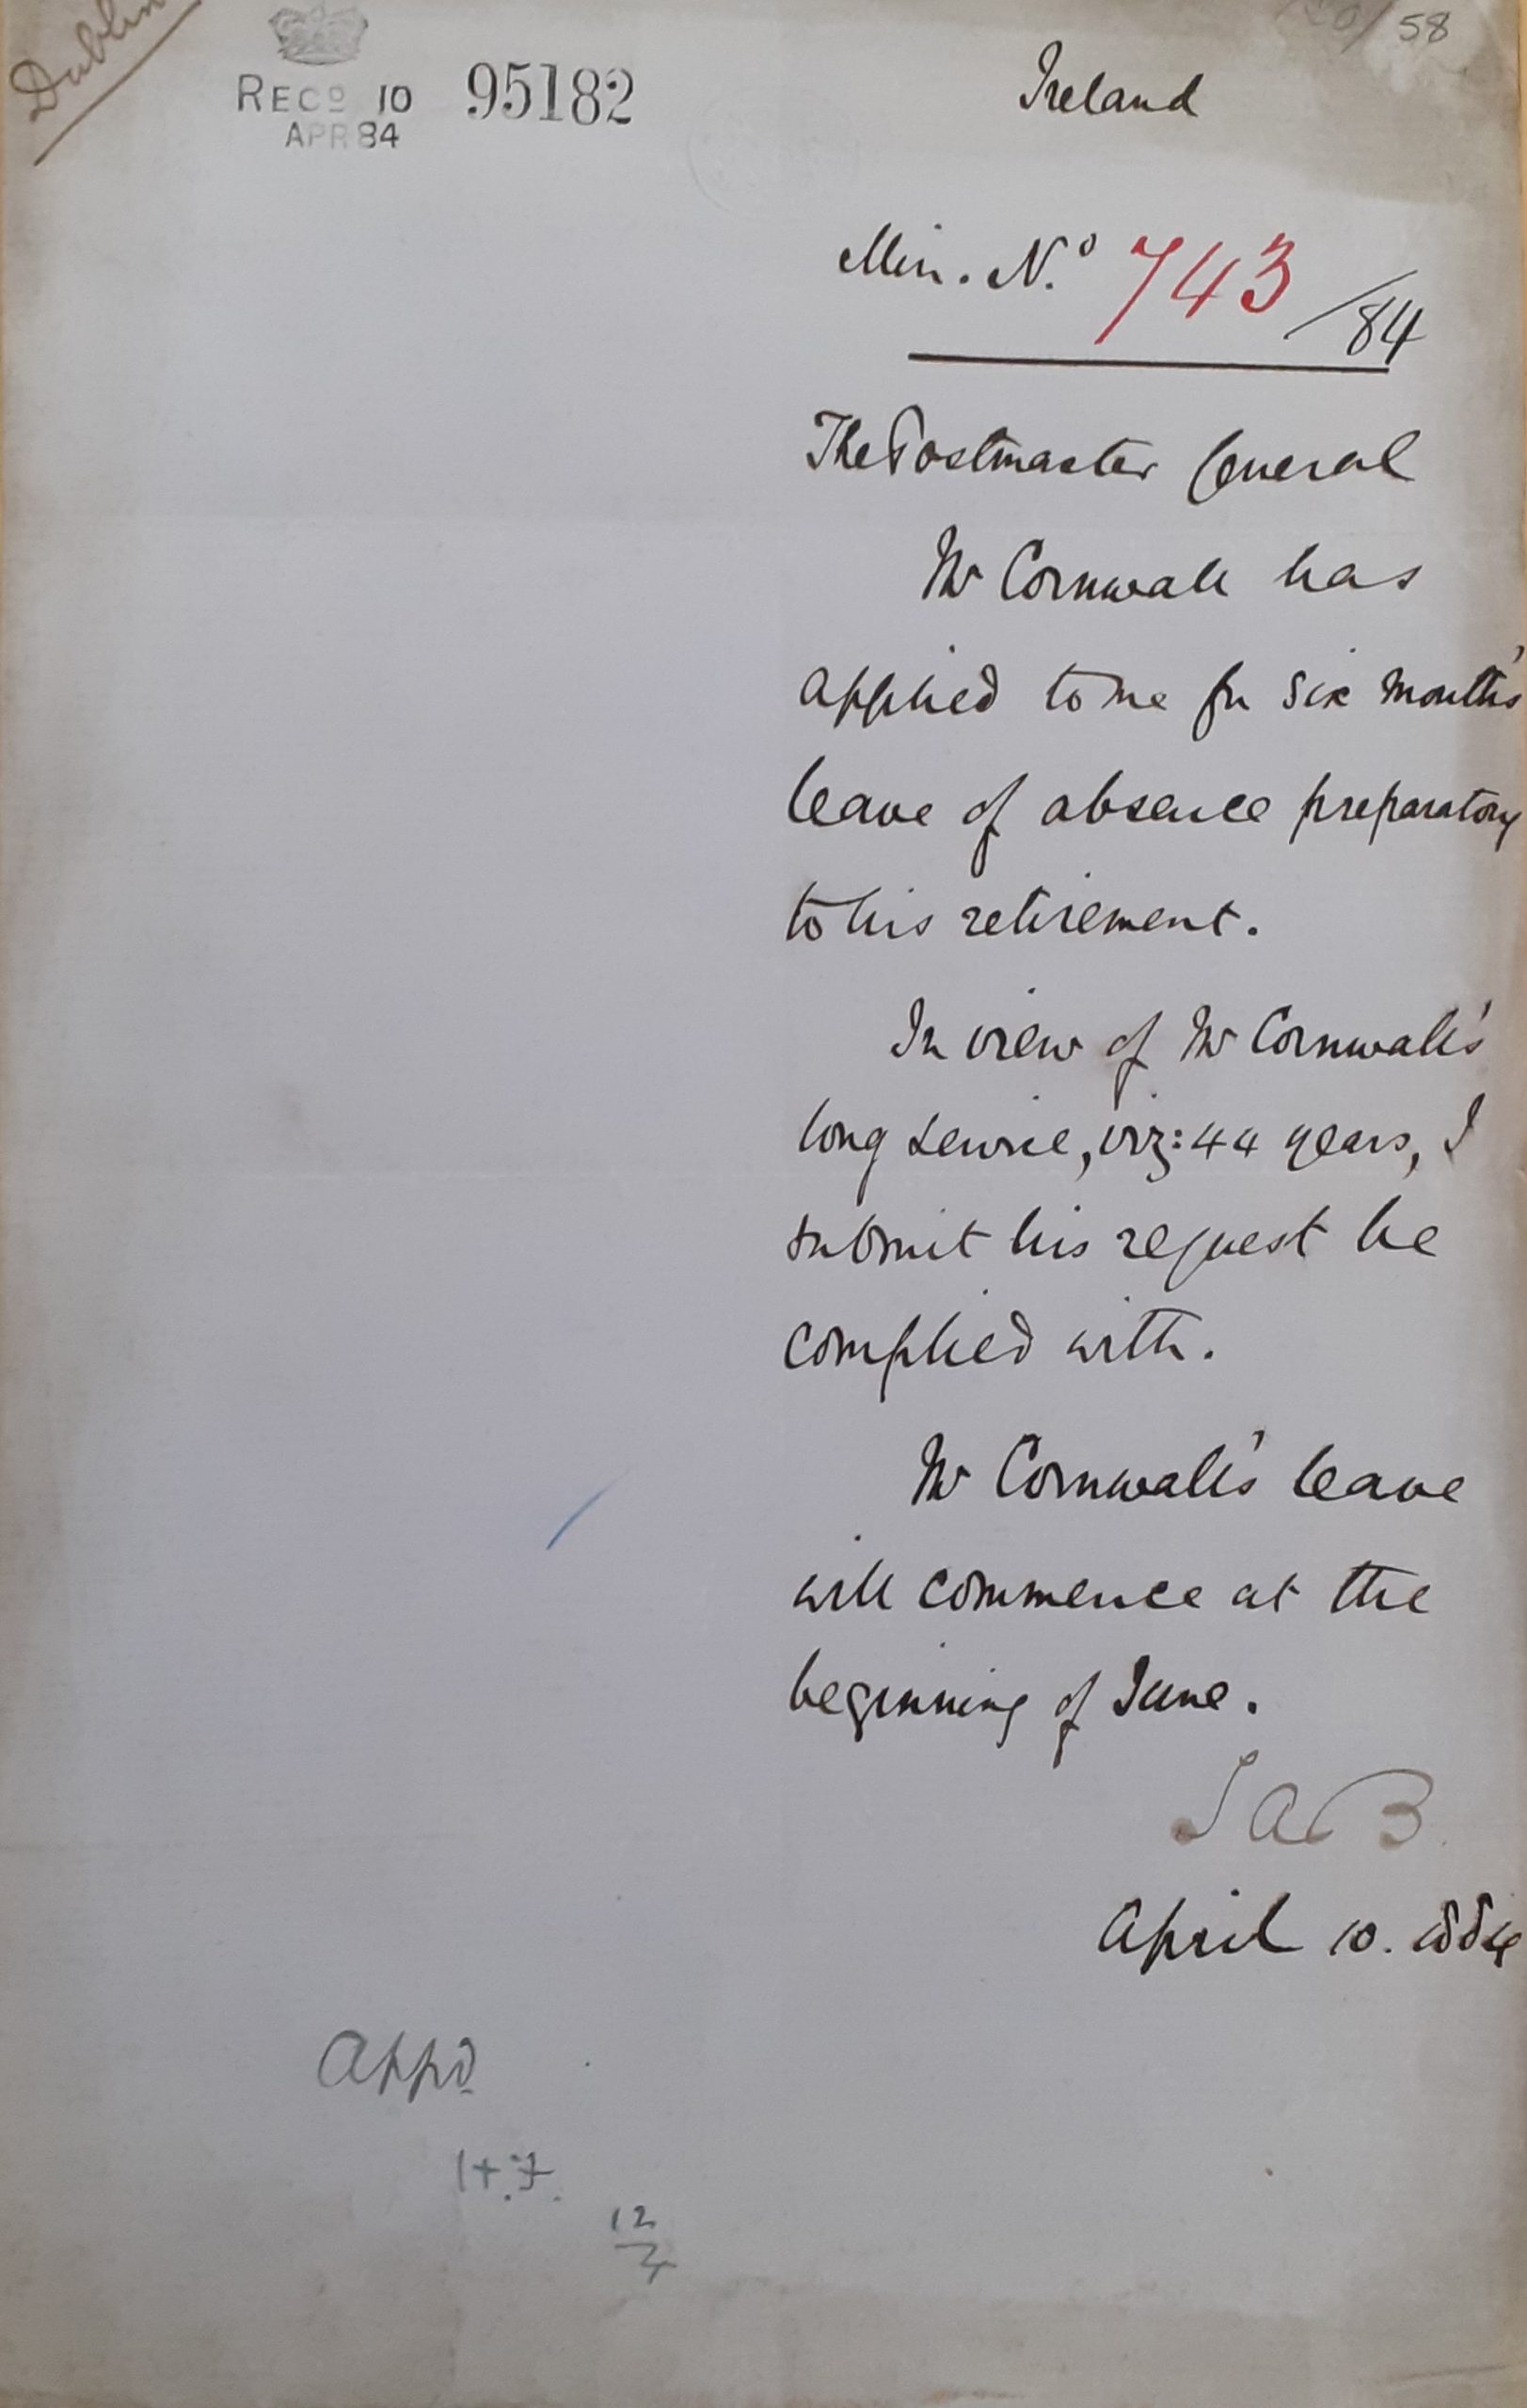 Dublin
REC^D 10
APR 84
95182
58
Ireland
Min. N.º 743/84
The Postmaster General
Mr Cornwall has
applied to me for six months'
leave of absence preparatory
to his retirement.
In view of Mr Cornwall's
long service, viz: 44 years, I
submit his request be
complied with.
Mr Cornwall's leave
will commence at the
beginning of June.
S A B.
April 10. 1884
App^d
H.F.
12/4